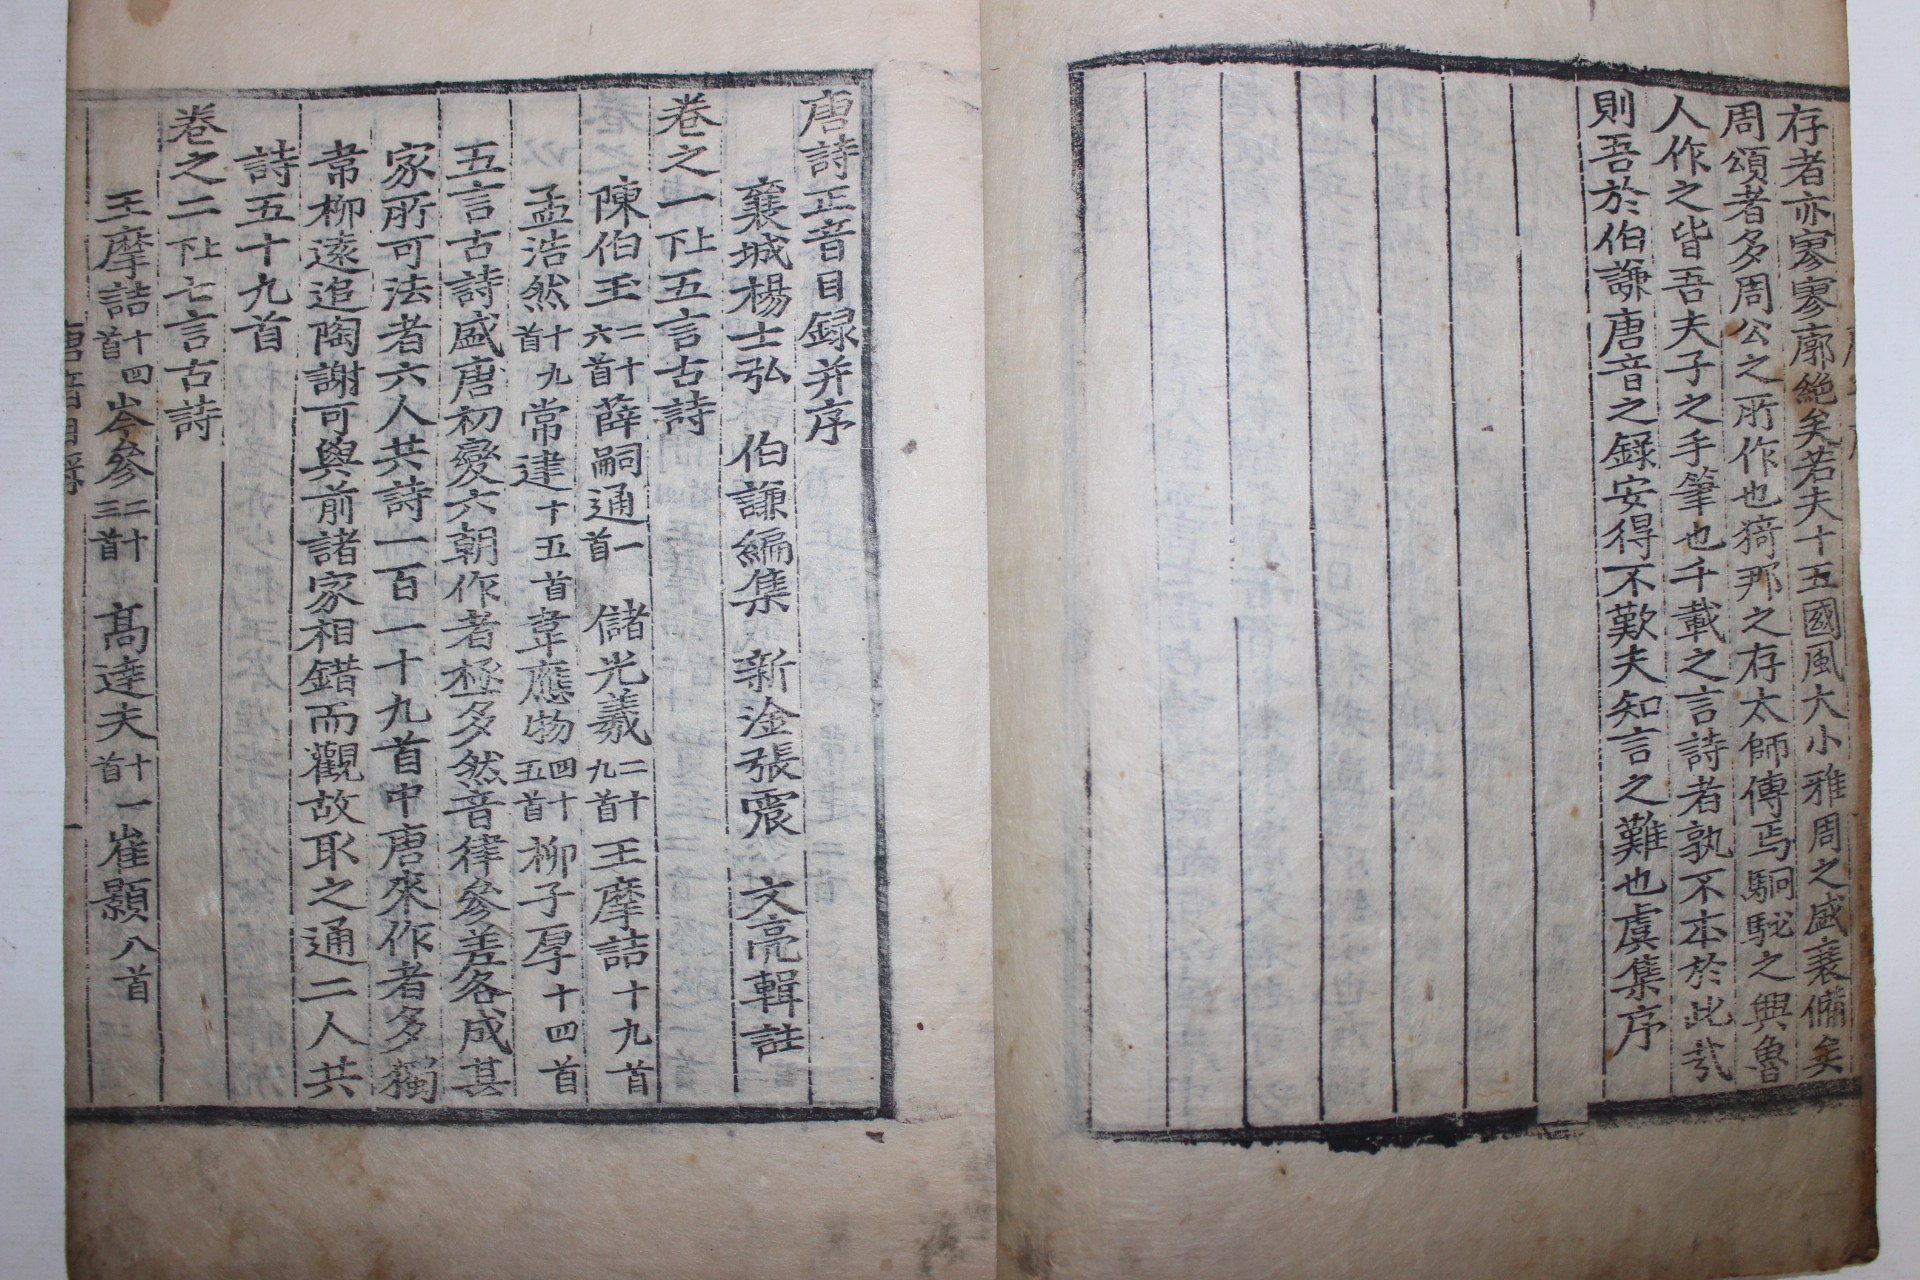 存者亦寥寥廓絶矣若夫十五國風大小雅周之盛衰備矣
周頌者多周公之所作也猗那之存太師傳焉駉駜之興魯
人作之皆吾夫子之手筆也千載之言詩者孰不本於此㢤
則吾於伯謙唐音之録安得不歎夫知言之難也虞集序
唐詩正音目録并序
襄城楊士弘 伯謙編集 新淦張震 文亮輯註
卷之一上下五言古詩
陳伯玉二十六首薛嗣通一首 儲光羲二十九首王摩詰十九首
孟浩然十九首常建十五首韋應物四十五首柳子厚十四首
五言古詩盛唐初變六朝作者極多然音律參差各成其
家所可法者六人共詩一百一十九首中唐來作者多獨
韋柳遠追陶謝可與前諸家相錯而觀故取之通二人共
詩五十九首
卷之二上下七言古詩
王摩詰十四首岑參二十三首 高達夫十一首崔顥八首
唐音目録 一